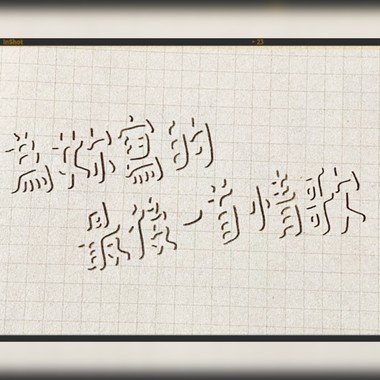 InShot
為你寫的
最後一首情歌